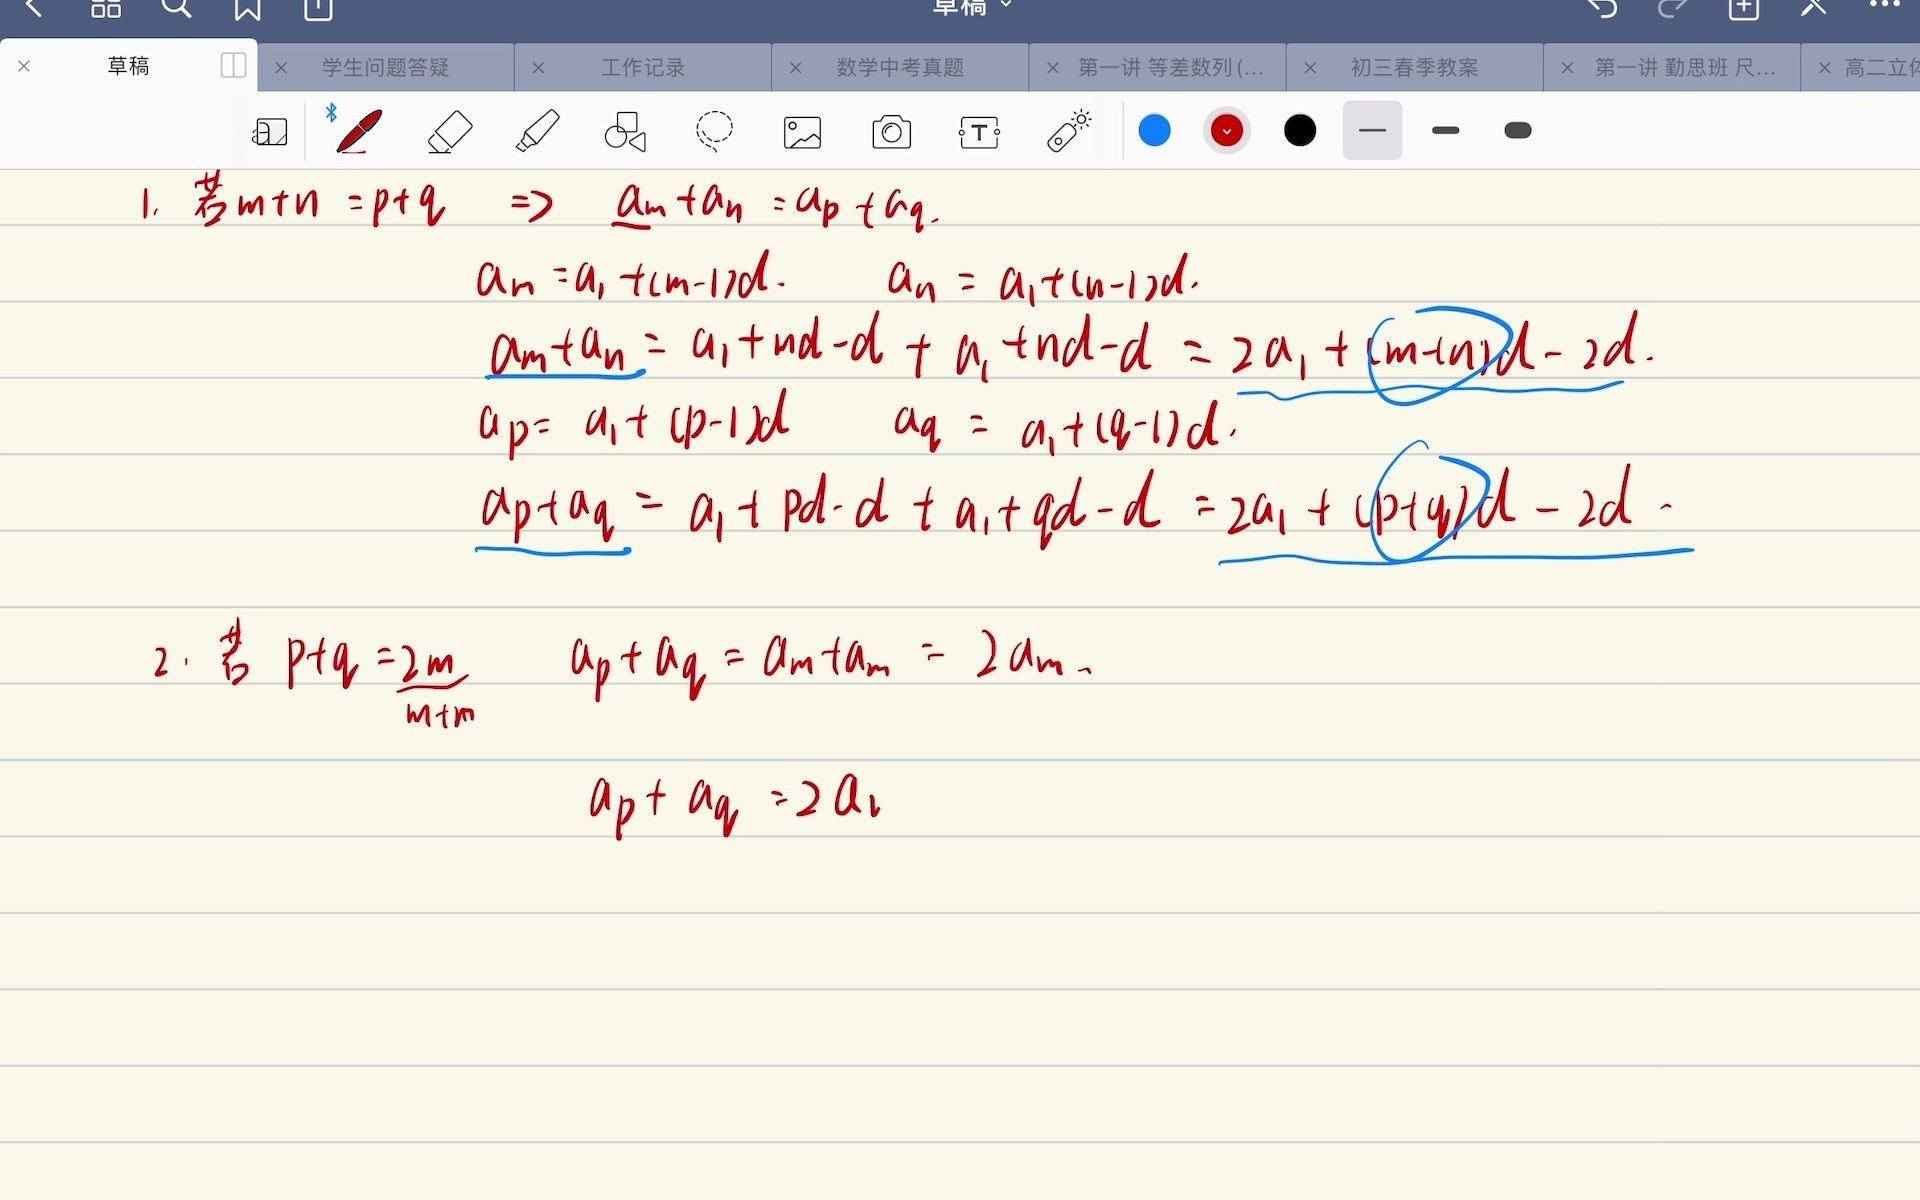 草稿
草稿 学生问题答疑 工作记录 数学中考真题 第一讲 等差数列 (... 初三春季教案 第一讲 勤思班 尺... 高二立体
1. 若m+n=p+q => am+an=ap+aq.
am=a1+(m-1)d. an=a1+(n-1)d.
am+an=a1+nd-d+a1+nd-d=2a1+(m+n)d-2d.
ap=a1+(p-1)d aq=a1+(q-1)d.
ap+aq=a1+pd-d+a1+qd-d=2a1+(p+q)d-2d.
2. 若 p+q=2m ap+aq=am+am=2am.
m+m
ap+aq=2a1